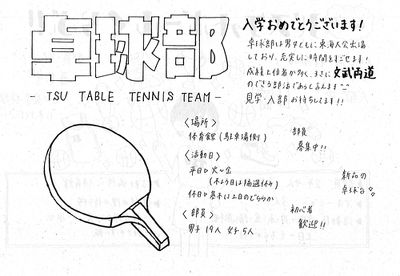 卓球部
- TSU TABLE TENNIS TEAM -
入学おめでとうございます！
卓球部は男女ともに東海大会出場
しており、充実した時間をすごせます！
成績上位者が多く、まさに文武両道
のできる部活であってるんます
見学・入部お待ちしてます!!
〈場所〉
体育館（駐車場側）
部員
募集中!!
〈活動日〉
平日▷火〜金
（木より日は隔週休み）
休日▷基本に土日のどちらか
新品の
卓球台
〈部員〉
男子 19人 女子 5人
初心者
歓迎!!